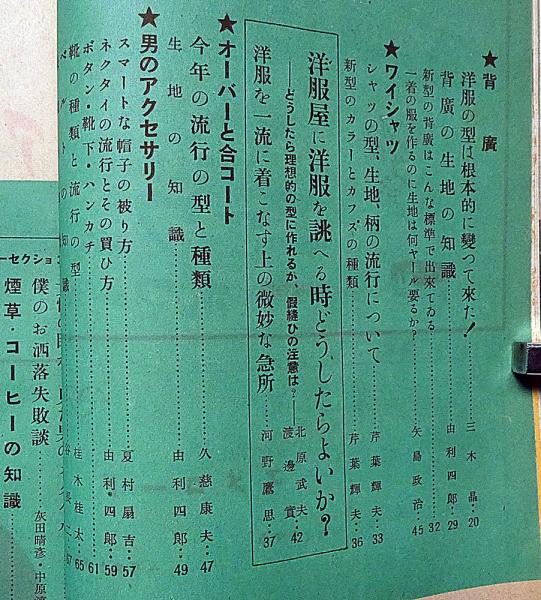 ★背廣
洋服の型は根本的に變つて來た!……三木晶…20
背廣の生地の知識……由利四郎…29
新型の背廣はこんな標準で出來てゐる……32
一着の服を作るのに生地は何ヤール要るか?……矢島政治…45
★ワイシャツ
シャツの型、生地、柄の流行について……芹葉輝夫…33
新型のカラーとカフズの種類……芹葉輝夫…36
洋服屋に洋服を誂へる時どうしたらよいか?
——どうしたら理想的の型に作れるか、假縫ひの注意は?——北原武夫 渡邊實…42
洋服を一流に着こなす上の微妙な急所……河野鷹思…37
★オーバーと合コート
今年の流行の型と種類……久慈康夫…47
生地の知識……由利四郎…49
★男のアクセサリー
スマートな帽子の被り方……夏村扇吉…57
ネクタイの流行とその買ひ方……由利四郎…59
ボタン・靴下・ハンカチ……61
靴の種類と流行の型……桂木桂太…65
ベルトの知識
67
ーセクション
僕のお洒落失敗談……灰田晴彦・中原淳
煙草・コーヒーの知識……